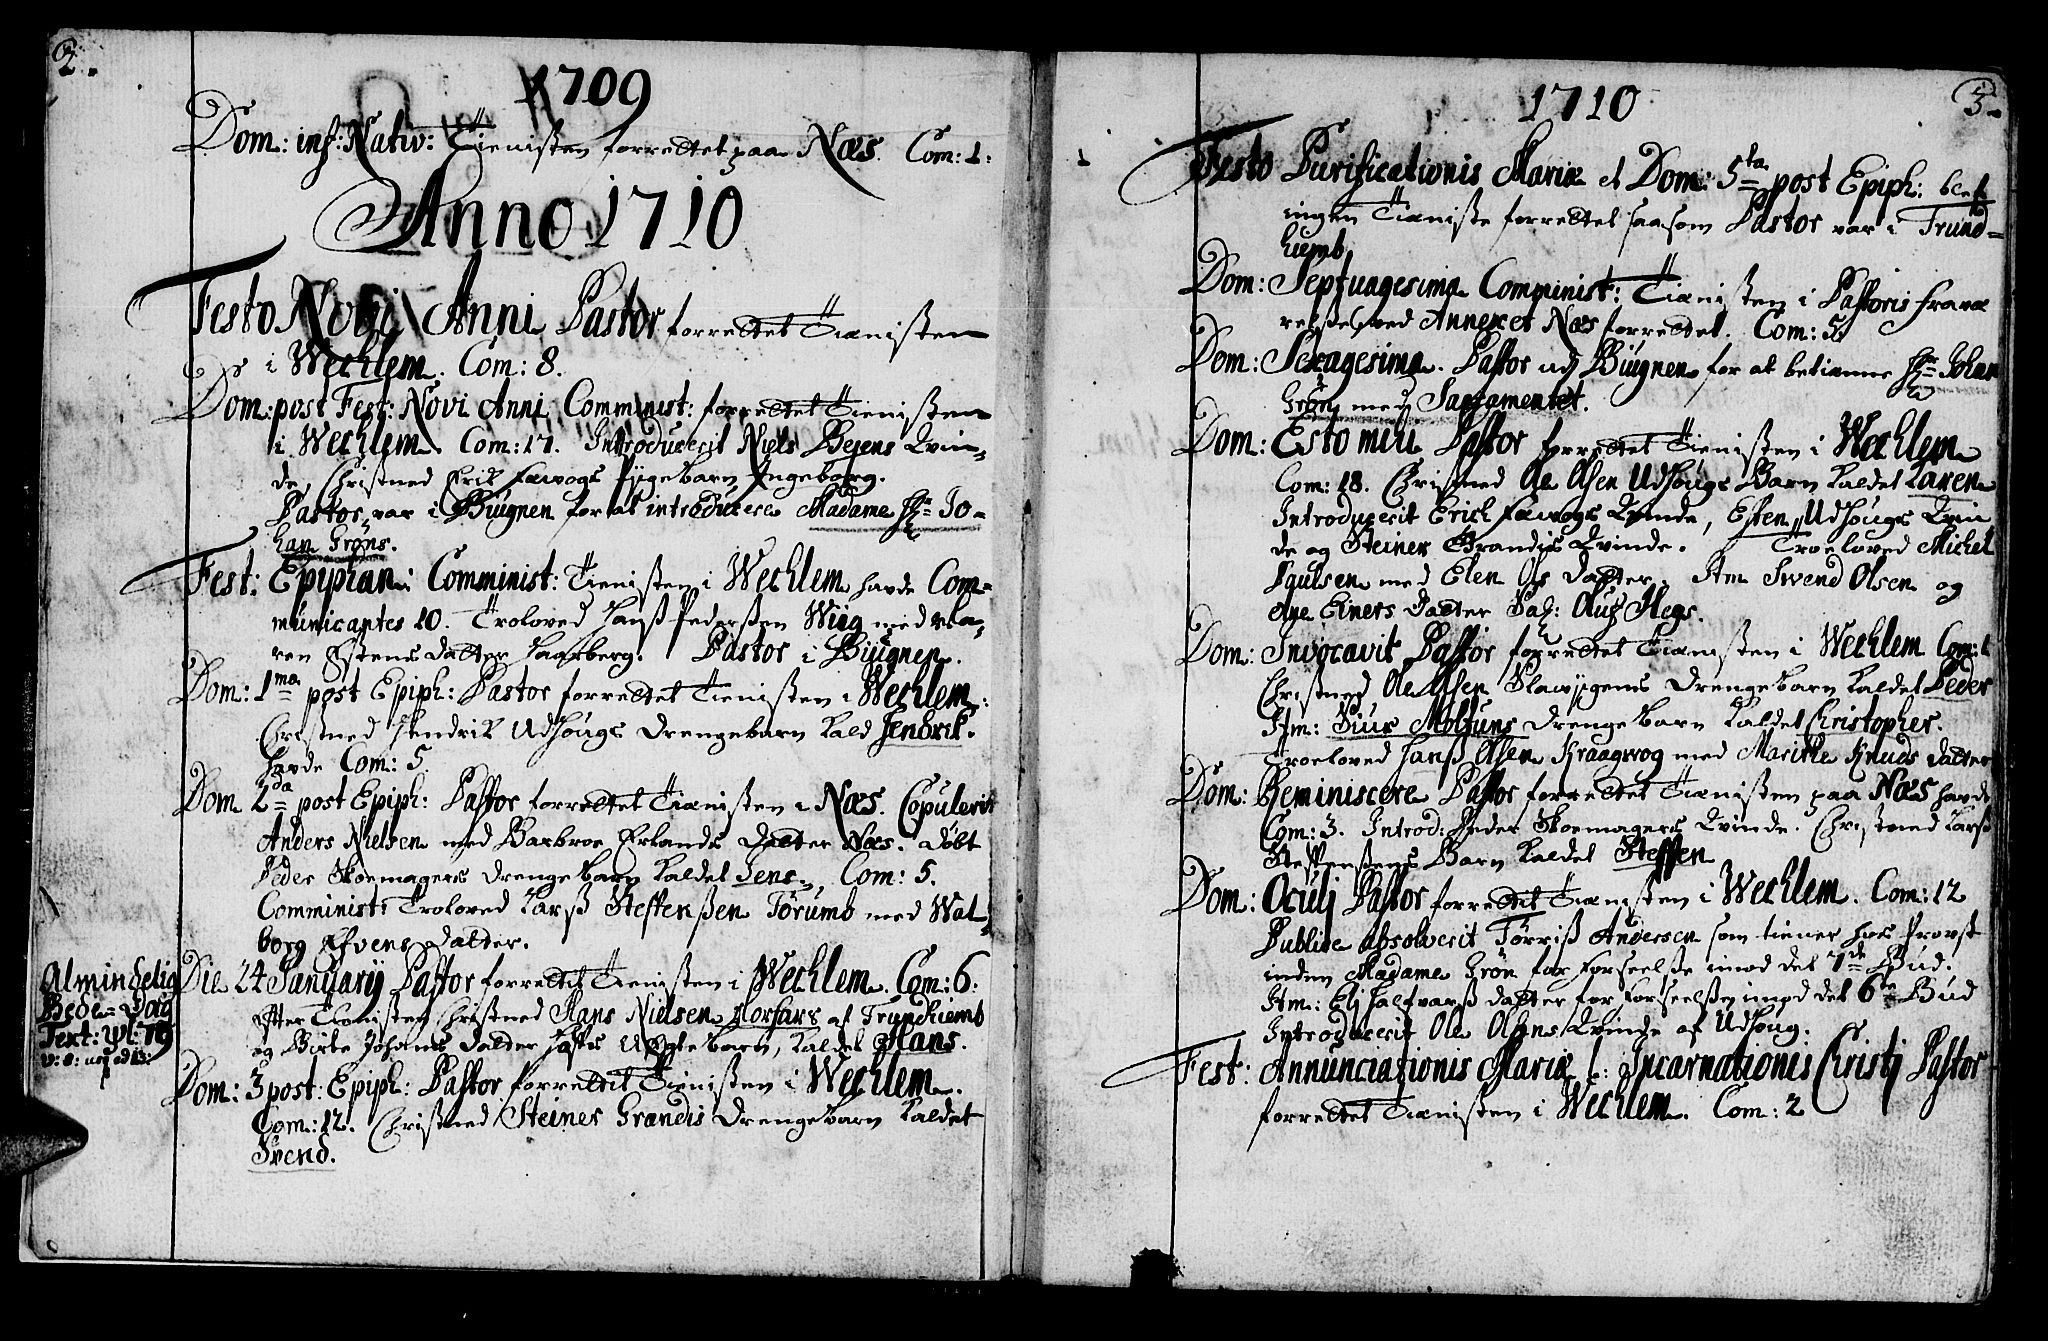 2.
1709
Dom: inf: Nativ: Tienisten forrettet paa Næs. Com: 1:
Anno 1710
Festo Novi Anni Pastor forrettet Tienisten
i Wechlem. Com: 8.
Dom: post Fest: Novi Anni Comminist: forrettet Tienisten
i Wechlem. Com: 17. Introducerit Niels Bejens Qvin-
de, Christned Erik Fævogs Pigebarn Ingeborg.
Pastor var i Biugnen for at introducere Madame Hr Jo-
han Grøns.
Fest: Epiphan: Comminist: Tienisten i Wechlem havde Com-
municantes 10. Troloved Hanss Pederssen Wiig med Ma-
ren Estens datter Haarberg. Pastor i Biugnen.
Dom: 1ma post Epiph: Pastor forrettet Tienisten i Wechlem:
Christned Hendrik Udhougs Drengebarn kald Henrik.
havde Com: 5
Dom 2da post Epiph: Pastor forrettet Tienisten i Næs. Copulerit
Anders Nielsen med Barbroe Erlands Datter Næs. Døbt
Peder Skoemagers Drengebarn kaldet Jens. Com: 5.
Comminist: Troloved Larss Steffenssen Torums med Wal-
borg Efvens datter.
Almindelig
Bede-Dag
Text: Psl: 79
v: 8: usq ad 13:
Die 24 January Pastor forrettit Tienisten i Wechlem. Com: 6:
Efter Tienisten Christned Hans Nielsen Norfars af Trundhiemb
og Birte Johans datter Hasses Uægte barn, kaldet Hans.
Dom: 3 post: Epiph: Pastor forrettit Tienisten i Wechlem.
Com: 12. Christned Steiner Grandis Drengebarn kaldet
Svend.
3.
1710
Festo Purificationis Mariæ et Dom: 5ta post Epiph: blef
ingen Tieniste forrettet saasom Pastor var i Trund-
hiemb
Dom: Septuagesima Comminist: Tienisten i Pastoris fravæ
relsse ved Annexet Næs forrettet. Com: 5.
Dom: Sexagesima. Pastor ud Biugnen for at betienne Hr Johan
Grøn med Sacramentet.
Dom: Esto mihi Pastor forrettet Tienisten i Wechlem
Com: 18. Christned Ole Olsen Udhougs Barn kaldet Karen
Introducerit Erich Fævogs Qvinde, Esten Udhougs Qvin
de og Steiner Grandis Qvinde. Troeloved Michel
Paulsen med Elen Ols datter. Itm Swend Olsen og
Ane Einers datter
Dom: Invocavit Pastor forrettet Tienisten i Wechlem Com: 1
Christned Ole Olsen Drengebarn kaldet Peder
Itm: Drengebarn kaldet Christopher.
Troeloved Hanss Olsen Kraagwog med Maritte Knuds datter
Dom: Reminiscere Pastor forrettet Tienisten paa Næs havde
Com: 3. Introd: Peder Skoemagers Qvinde. Christned Larss
Steffenssens Barn kaldet Steffen
Dom: Oculi Pastor forrettit Tienisten i Wechlem. Com: 12
Publice absolverit Tørriss Andersen som tiener hos Provst
inden Madame Grøn for forseelsse imod det 7de Bud.
Itm: Eli Halfvarss datter for forseelssen imod det 6te Bud
Introducerit Ole Olsens Qvinde af Udhoug.
Fest: Annunciationis Mariæ l: Incarnationis Christi Pastor
forrettet Tienisten i Wechlem. Com: 2